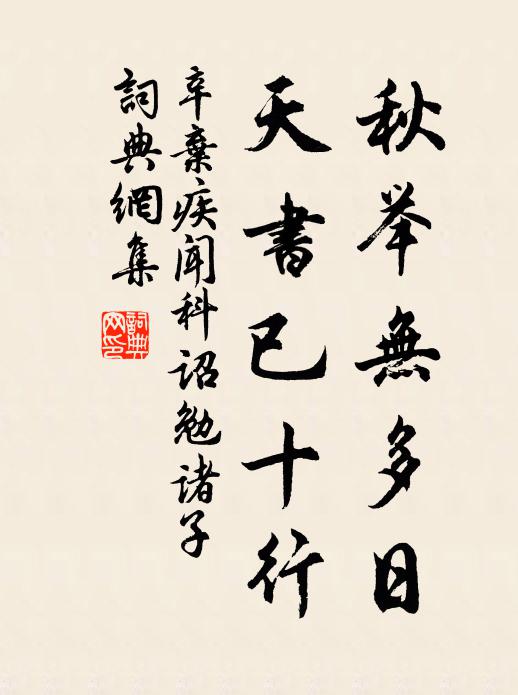 秋举無多日
天書已十行
辛棄疾聞科詔勉诸子
詞典網集
詞典网印